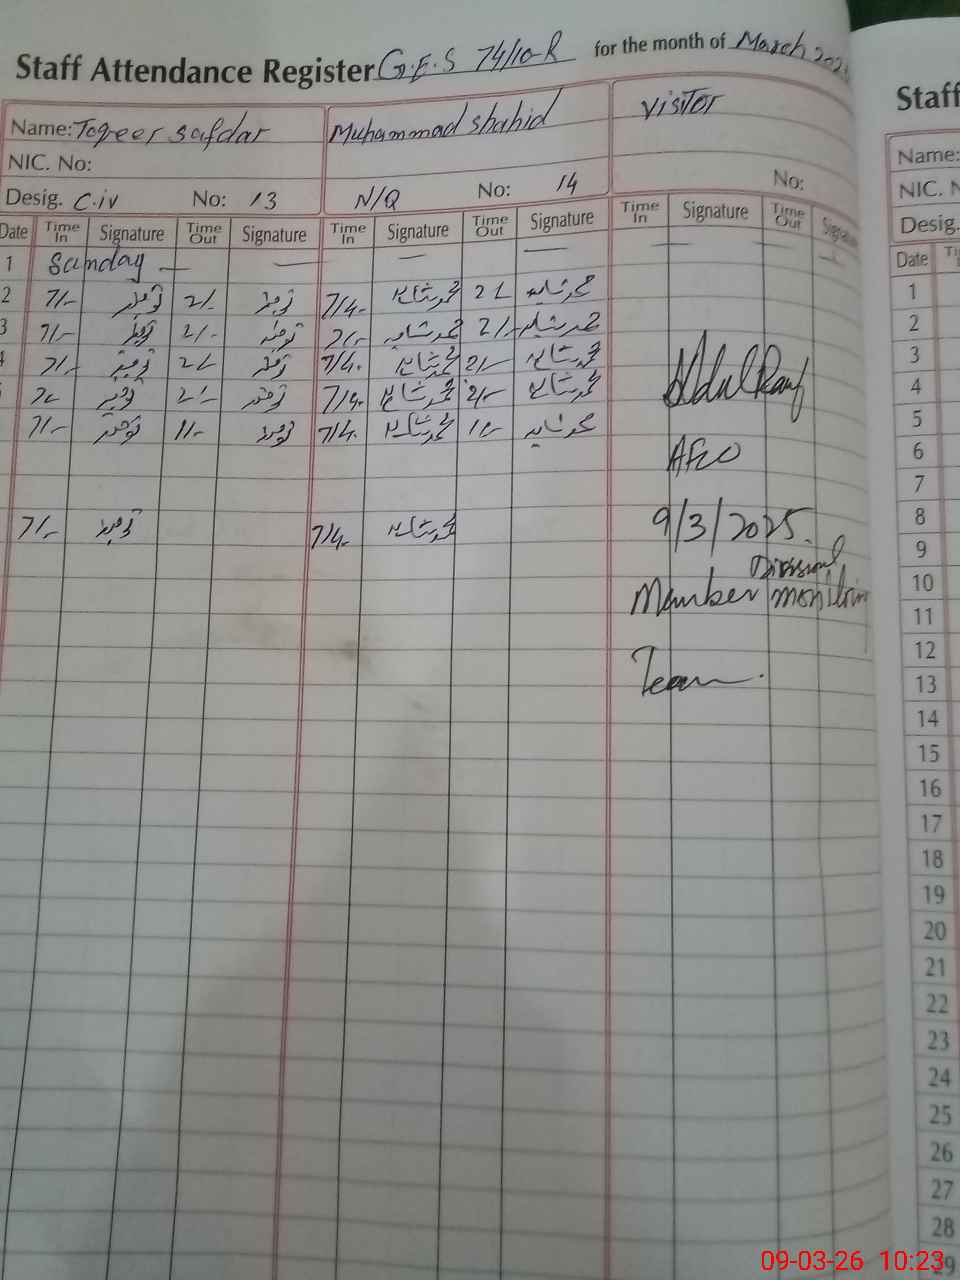 Staff Attendance Register G.E.S 74/10-R for the month of March 202
Name: Toqeer Safdar Muhammad Shahid VISITOR
NIC. No:
Desig. C.iv No: 13 N/Q No: 14 No:
Date Time In Signature Time Out Signature Time In Signature Time Out Signature Time In Signature Time Out Signature
1 Sunday — — — — — — — —
2 7/- توقیر 2/- توقیر 7/4- محمد شاہد 2/- محمد شاہد
3 7/- توقیر 2/- توقیر 7/- محمد شاہد 2/- محمد شاہد
4 7/- توقیر 2/- توقیر 7/4- محمد شاہد 2/- محمد شاہد
7/- توقیر 2/- توقیر 7/4- محمد شاہد 2/- محمد شاہد
7/- توقیر 11/- توقیر 7/4- محمد شاہد محمد شاہد
7/- توقیر 7/4- محمد شاہد
Abdul Rauf
AEO
9/3/2025.
Divisional
Member monitoring
Team.
Staff
Name:
NIC. N
Desig.
Date Ti
1
2
3
4
5
6
7
8
9
10
11
12
13
14
15
16
17
18
19
20
21
22
23
24
25
26
27
28
29
09-03-26 10:23